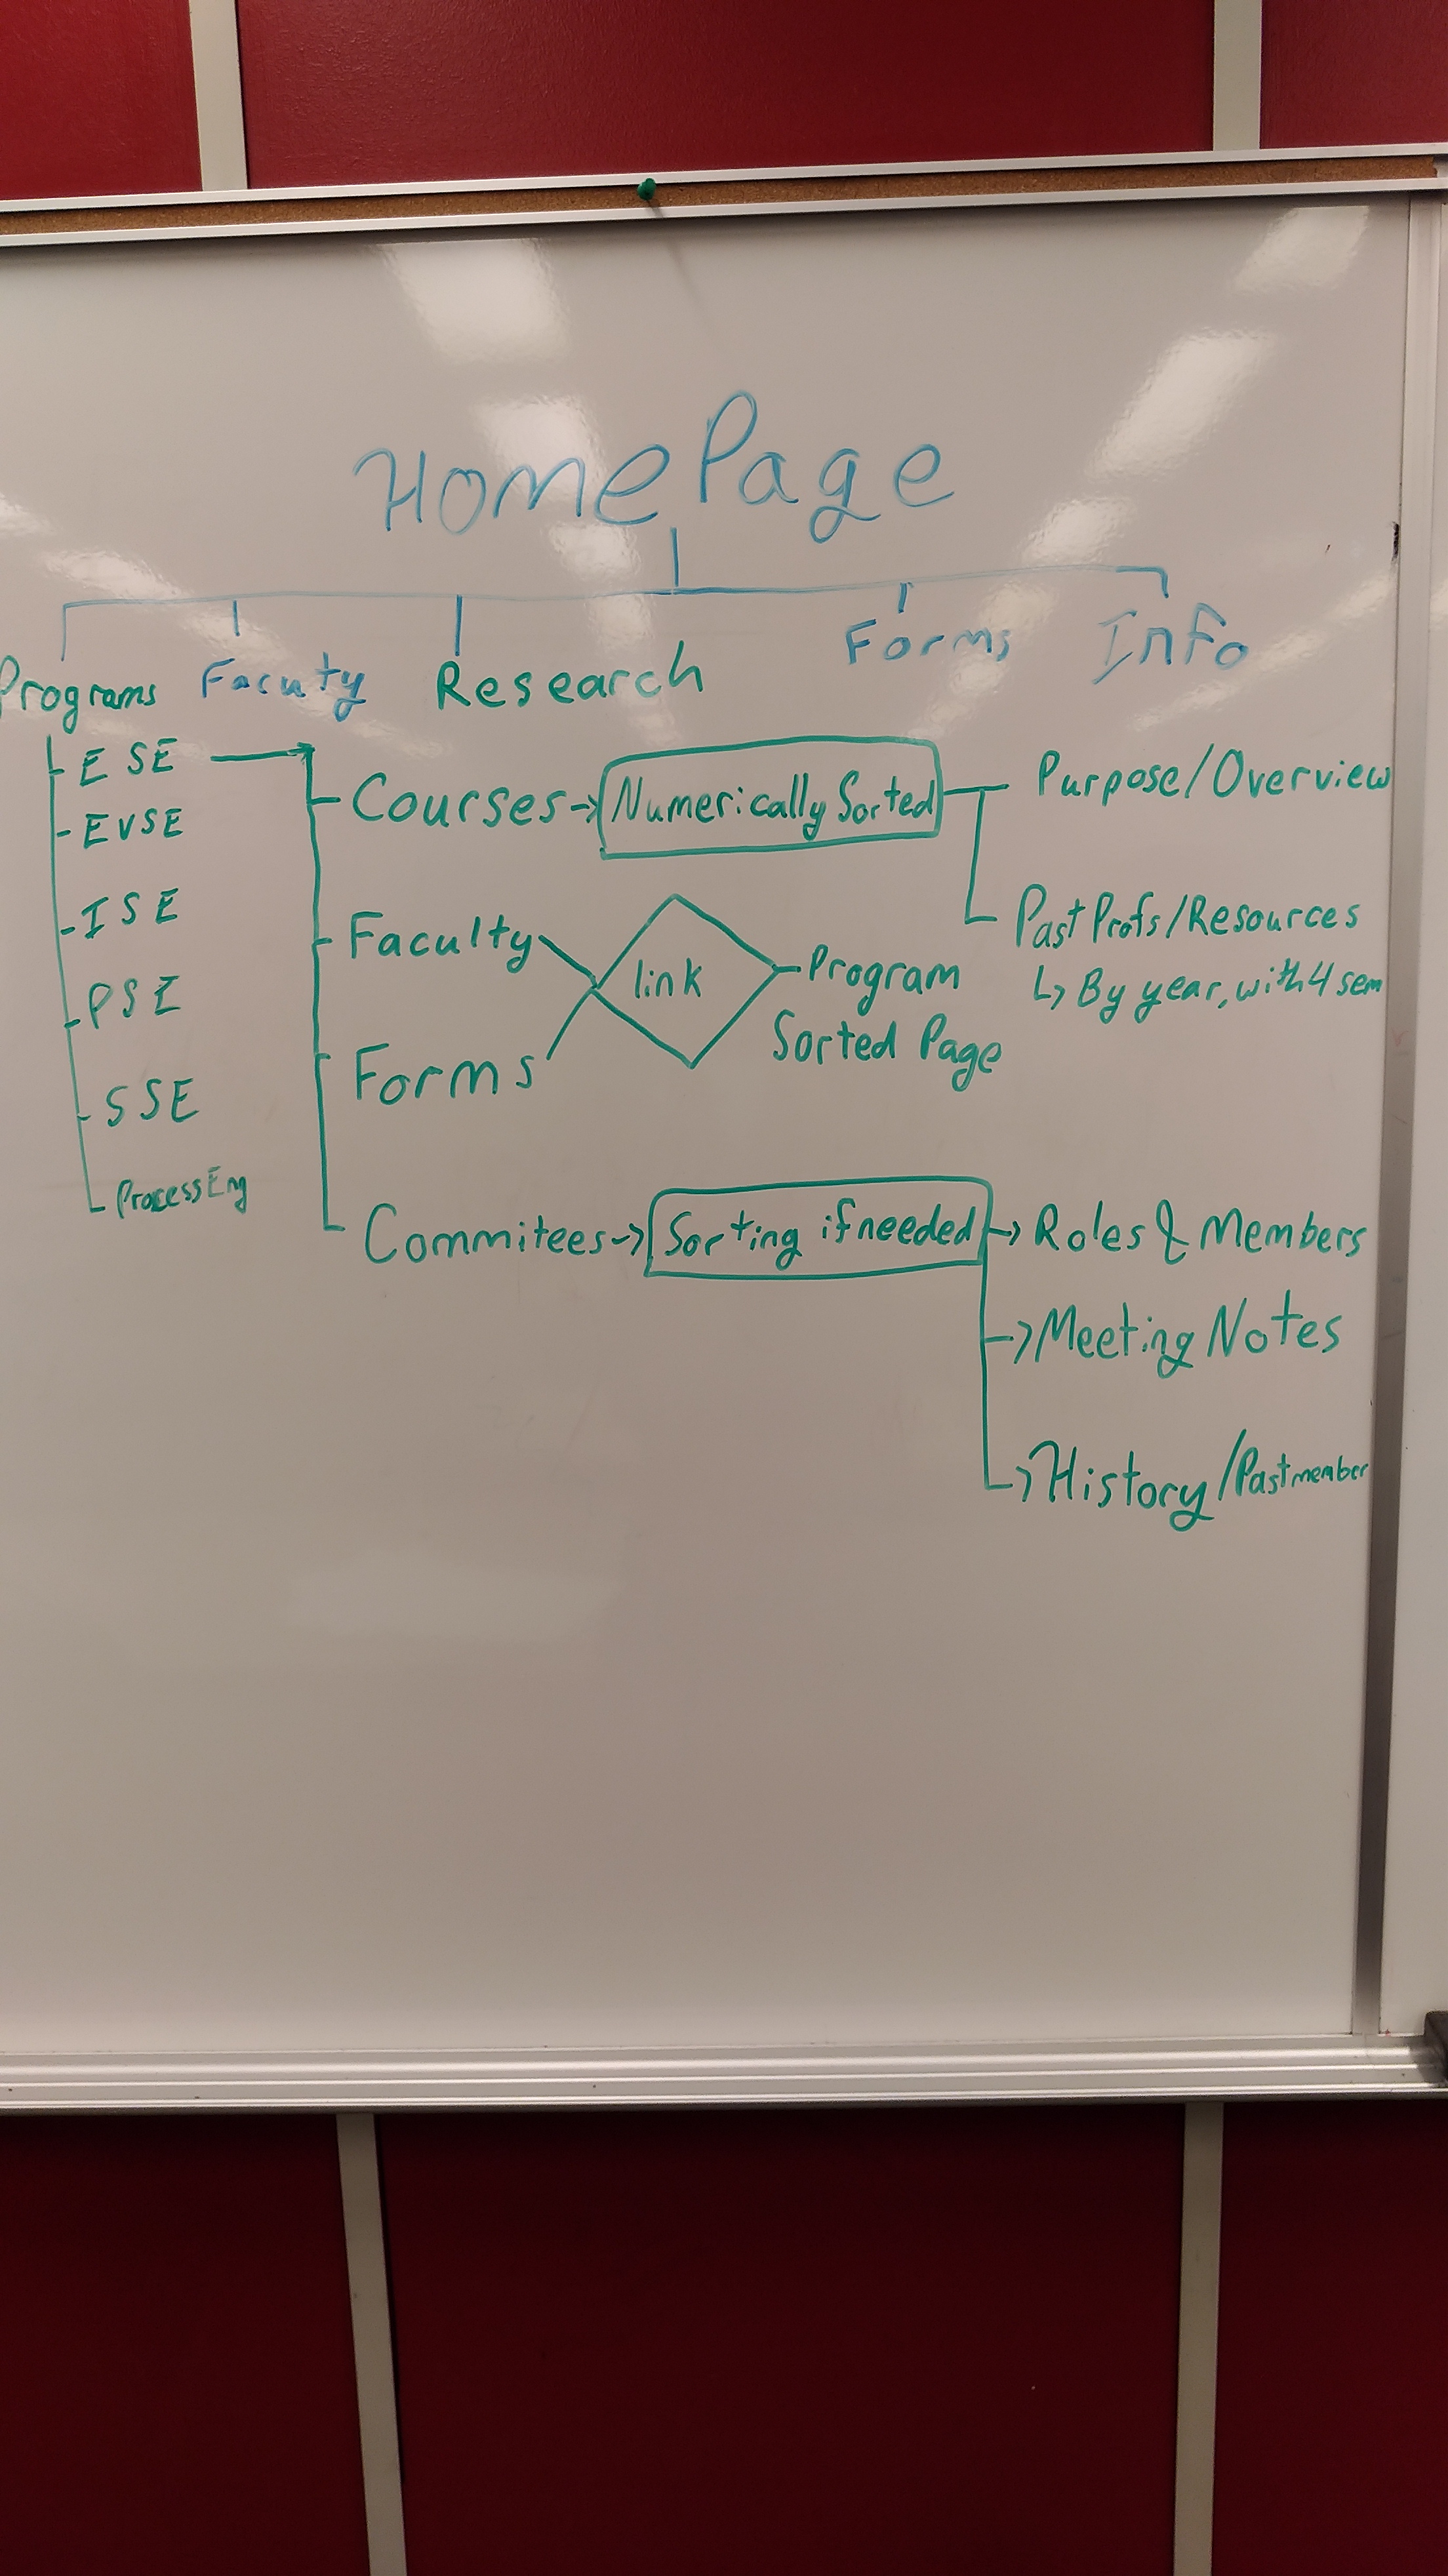 HomePage
Programs Facuty Research Forms Info
ESE
EVSE
ISE
PSE
SSE
ProcessEng
Courses -> Numerically Sorted
Purpose/Overview
Past Profs/Resources
↳ By year, with 4 sem
Faculty
Forms
link
Program
Sorted Page
Commitees -> Sorting if needed
-> Roles & Members
-> Meeting Notes
-> History/Pastmember